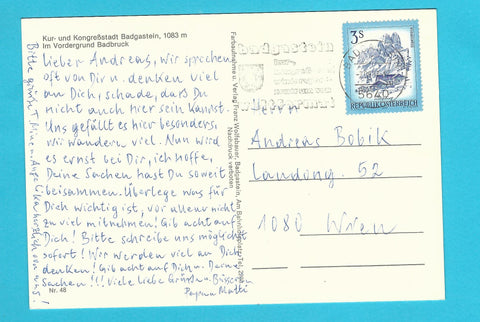 Kur- und Kongreßstadt Badgastein, 1083 m
Im Vordergrund Badbruck
Lieber Andreas, wir sprechen
oft von Dir u. denken viel
an Dich, schade, daß Du
nicht auch hier sein kannst.
Uns gefällt es hier besonders,
wir wandern viel. Nun wird
es ernst bei Dir, ich hoffe,
Deine Sachen hast Du soweit
beisammen. Überlege was für
Dich wichtig ist, vor allem nicht
zu viel mitnehmen! Gib acht auf
Dich! Bitte schreibe uns möglichst
sofort! Wir werden viel an Dich
denken! Gib acht auf Dich u. Deine
Sachen!!! Viele liebe Grüße u. Bussi
Papa u Mutti
Bitte grüße T. Mine u. herzlich von uns!
Nr. 48
Farbaufnahme u. Verlag Franz Wolfsbauer, Badgastein, Am Bahnhofplatz, Tel.
Nachdruck verboten
badgastein
3S
REPUBLIK ÖSTERREICH
5640
Andreas Bobik
Landong. 52
1080 Wien